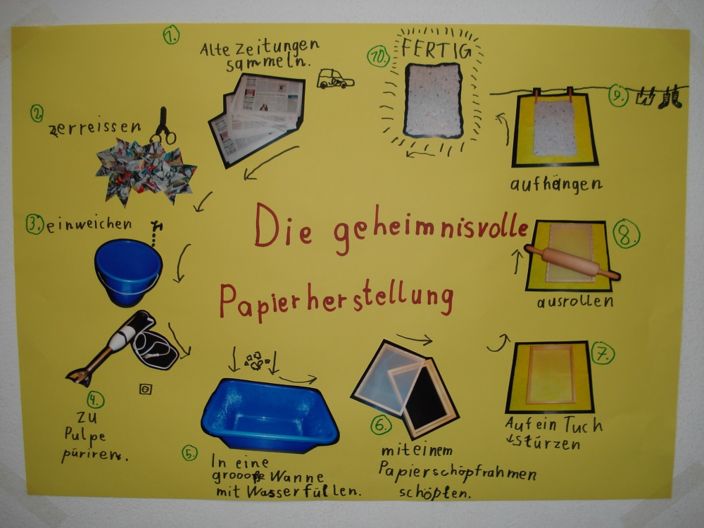 Die geheimnisvolle
Papierherstellung
1.
Alte Zeitungen
sammeln.
2.
zerreissen
3.
einweichen
4.
zu
Pulpe
püriren.
5.
In eine
grooße Wanne
mit Wasser füllen.
6.
mit einem
Papierschöpfrahmen
schöpfen.
7.
Auf ein Tuch
stürzen
8.
ausrollen
9.
aufhängen
10.
FERTIG